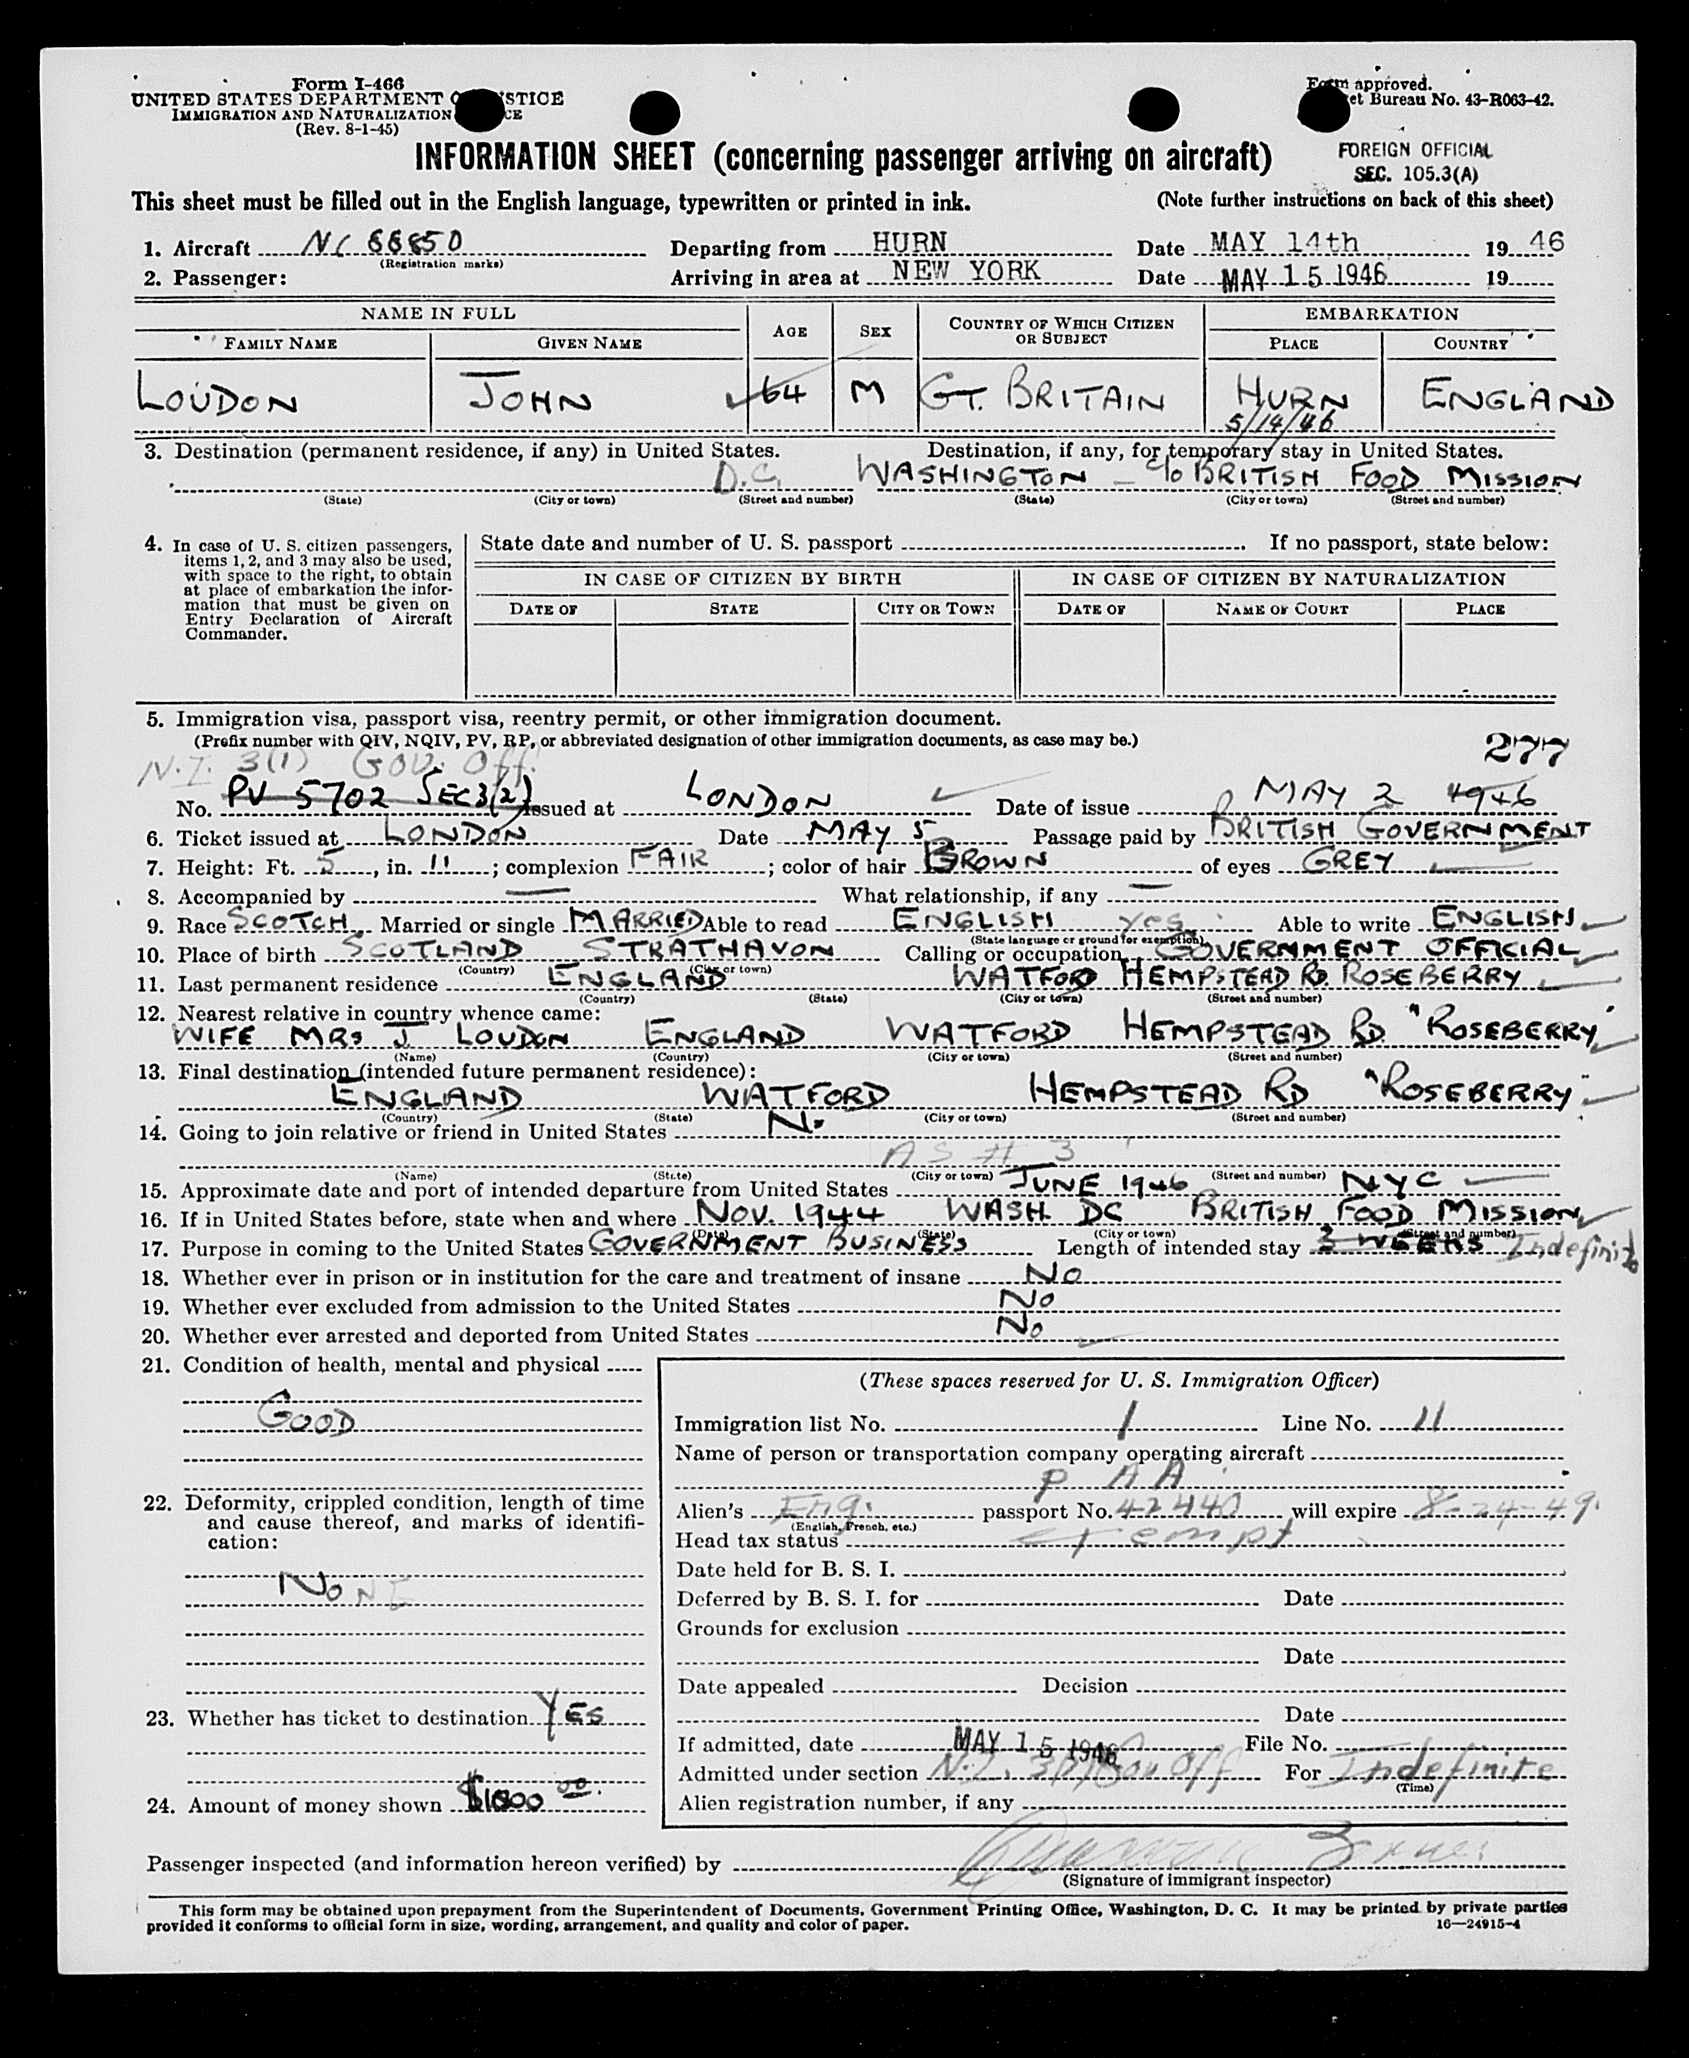 Form I-466
UNITED STATES DEPARTMENT OF JUSTICE
IMMIGRATION AND NATURALIZATION SERVICE
(Rev. 8-1-45)
Form approved.
Budget Bureau No. 43-R063-42.
INFORMATION SHEET (concerning passenger arriving on aircraft)
FOREIGN OFFICIAL
SEC. 105.3(A)
This sheet must be filled out in the English language, typewritten or printed in ink. (Note further instructions on back of this sheet)
1. Aircraft NC 88850 Departing from HURN Date MAY 14th 1946
(Registration marks)
2. Passenger: Arriving in area at NEW YORK Date MAY 15 1946 19
NAME IN FULL AGE SEX COUNTRY OF WHICH CITIZEN OR SUBJECT EMBARKATION
FAMILY NAME GIVEN NAME PLACE COUNTRY
LOUDON JOHN 64 M GT. BRITAIN HURN ENGLAND
5/14/46
3. Destination (permanent residence, if any) in United States. Destination, if any, for temporary stay in United States.
D.C. WASHINGTON - c/o BRITISH FOOD MISSION
(State) (City or town) (Street and number) (State) (City or town) (Street and number)
4. In case of U. S. citizen passengers, items 1, 2, and 3 may also be used, with space to the right, to obtain at place of embarkation the information that must be given on Entry Declaration of Aircraft Commander.
State date and number of U. S. passport If no passport, state below:
IN CASE OF CITIZEN BY BIRTH IN CASE OF CITIZEN BY NATURALIZATION
DATE OF STATE CITY OR TOWN DATE OF NAME OF COURT PLACE
5. Immigration visa, passport visa, reentry permit, or other immigration document.
(Prefix number with QIV, NQIV, PV, RP, or abbreviated designation of other immigration documents, as case may be.)
277
N.I. 3(1) GOV. Off.
No. PV 5702 SEC 3(2) Issued at LONDON Date of issue MAY 2 1946
6. Ticket issued at LONDON Date MAY 5 Passage paid by BRITISH GOVERNMENT
7. Height: Ft. 5, in. 11; complexion FAIR; color of hair BROWN of eyes GREY
8. Accompanied by — What relationship, if any —
9. Race SCOTCH Married or single MARRIED Able to read ENGLISH yes Able to write ENGLISH
(State language or ground for exemption)
10. Place of birth SCOTLAND STRATHAVON Calling or occupation GOVERNMENT OFFICIAL
(Country) (City or town)
11. Last permanent residence ENGLAND WATFORD HEMPSTEAD RD. ROSEBERRY
(Country) (State) (City or town) (Street and number)
12. Nearest relative in country whence came:
WIFE MRS J LOUDON ENGLAND WATFORD HEMPSTEAD RD "ROSEBERRY"
(Name) (Country) (City or town) (Street and number)
13. Final destination (intended future permanent residence):
ENGLAND WATFORD HEMPSTEAD RD "ROSEBERRY"
(Country) (State) (City or town) (Street and number)
14. Going to join relative or friend in United States No
AS # 3
(Name) (State) (City or town) (Street and number)
15. Approximate date and port of intended departure from United States JUNE 1946 NYC
16. If in United States before, state when and where NOV. 1944 WASH DC BRITISH FOOD MISSION
(Date) (State) (City or town) (Street and number)
17. Purpose in coming to the United States GOVERNMENT BUSINESS Length of intended stay 3 WEEKS Indefinite
18. Whether ever in prison or in institution for the care and treatment of insane NO
19. Whether ever excluded from admission to the United States NO
20. Whether ever arrested and deported from United States NO
21. Condition of health, mental and physical
GOOD
22. Deformity, crippled condition, length of time and cause thereof, and marks of identification:
NONE
23. Whether has ticket to destination YES
24. Amount of money shown $1000 00
(These spaces reserved for U. S. Immigration Officer)
Immigration list No. 1 Line No. 11
Name of person or transportation company operating aircraft
P A A
Alien's Eng. passport No. 42440 will expire 8-24-49.
(English, French, etc.)
Head tax status exempt
Date held for B. S. I.
Deferred by B. S. I. for Date
Grounds for exclusion
Date
Date appealed Decision
Date
If admitted, date MAY 15 1946 File No.
Admitted under section N.I. 3(1) Gov Off For Indefinite
(Time)
Alien registration number, if any
Passenger inspected (and information hereon verified) by
(Signature of immigrant inspector)
This form may be obtained upon prepayment from the Superintendent of Documents, Government Printing Office, Washington, D. C. It may be printed by private parties
provided it conforms to official form in size, wording, arrangement, and quality and color of paper. 16—24915-4